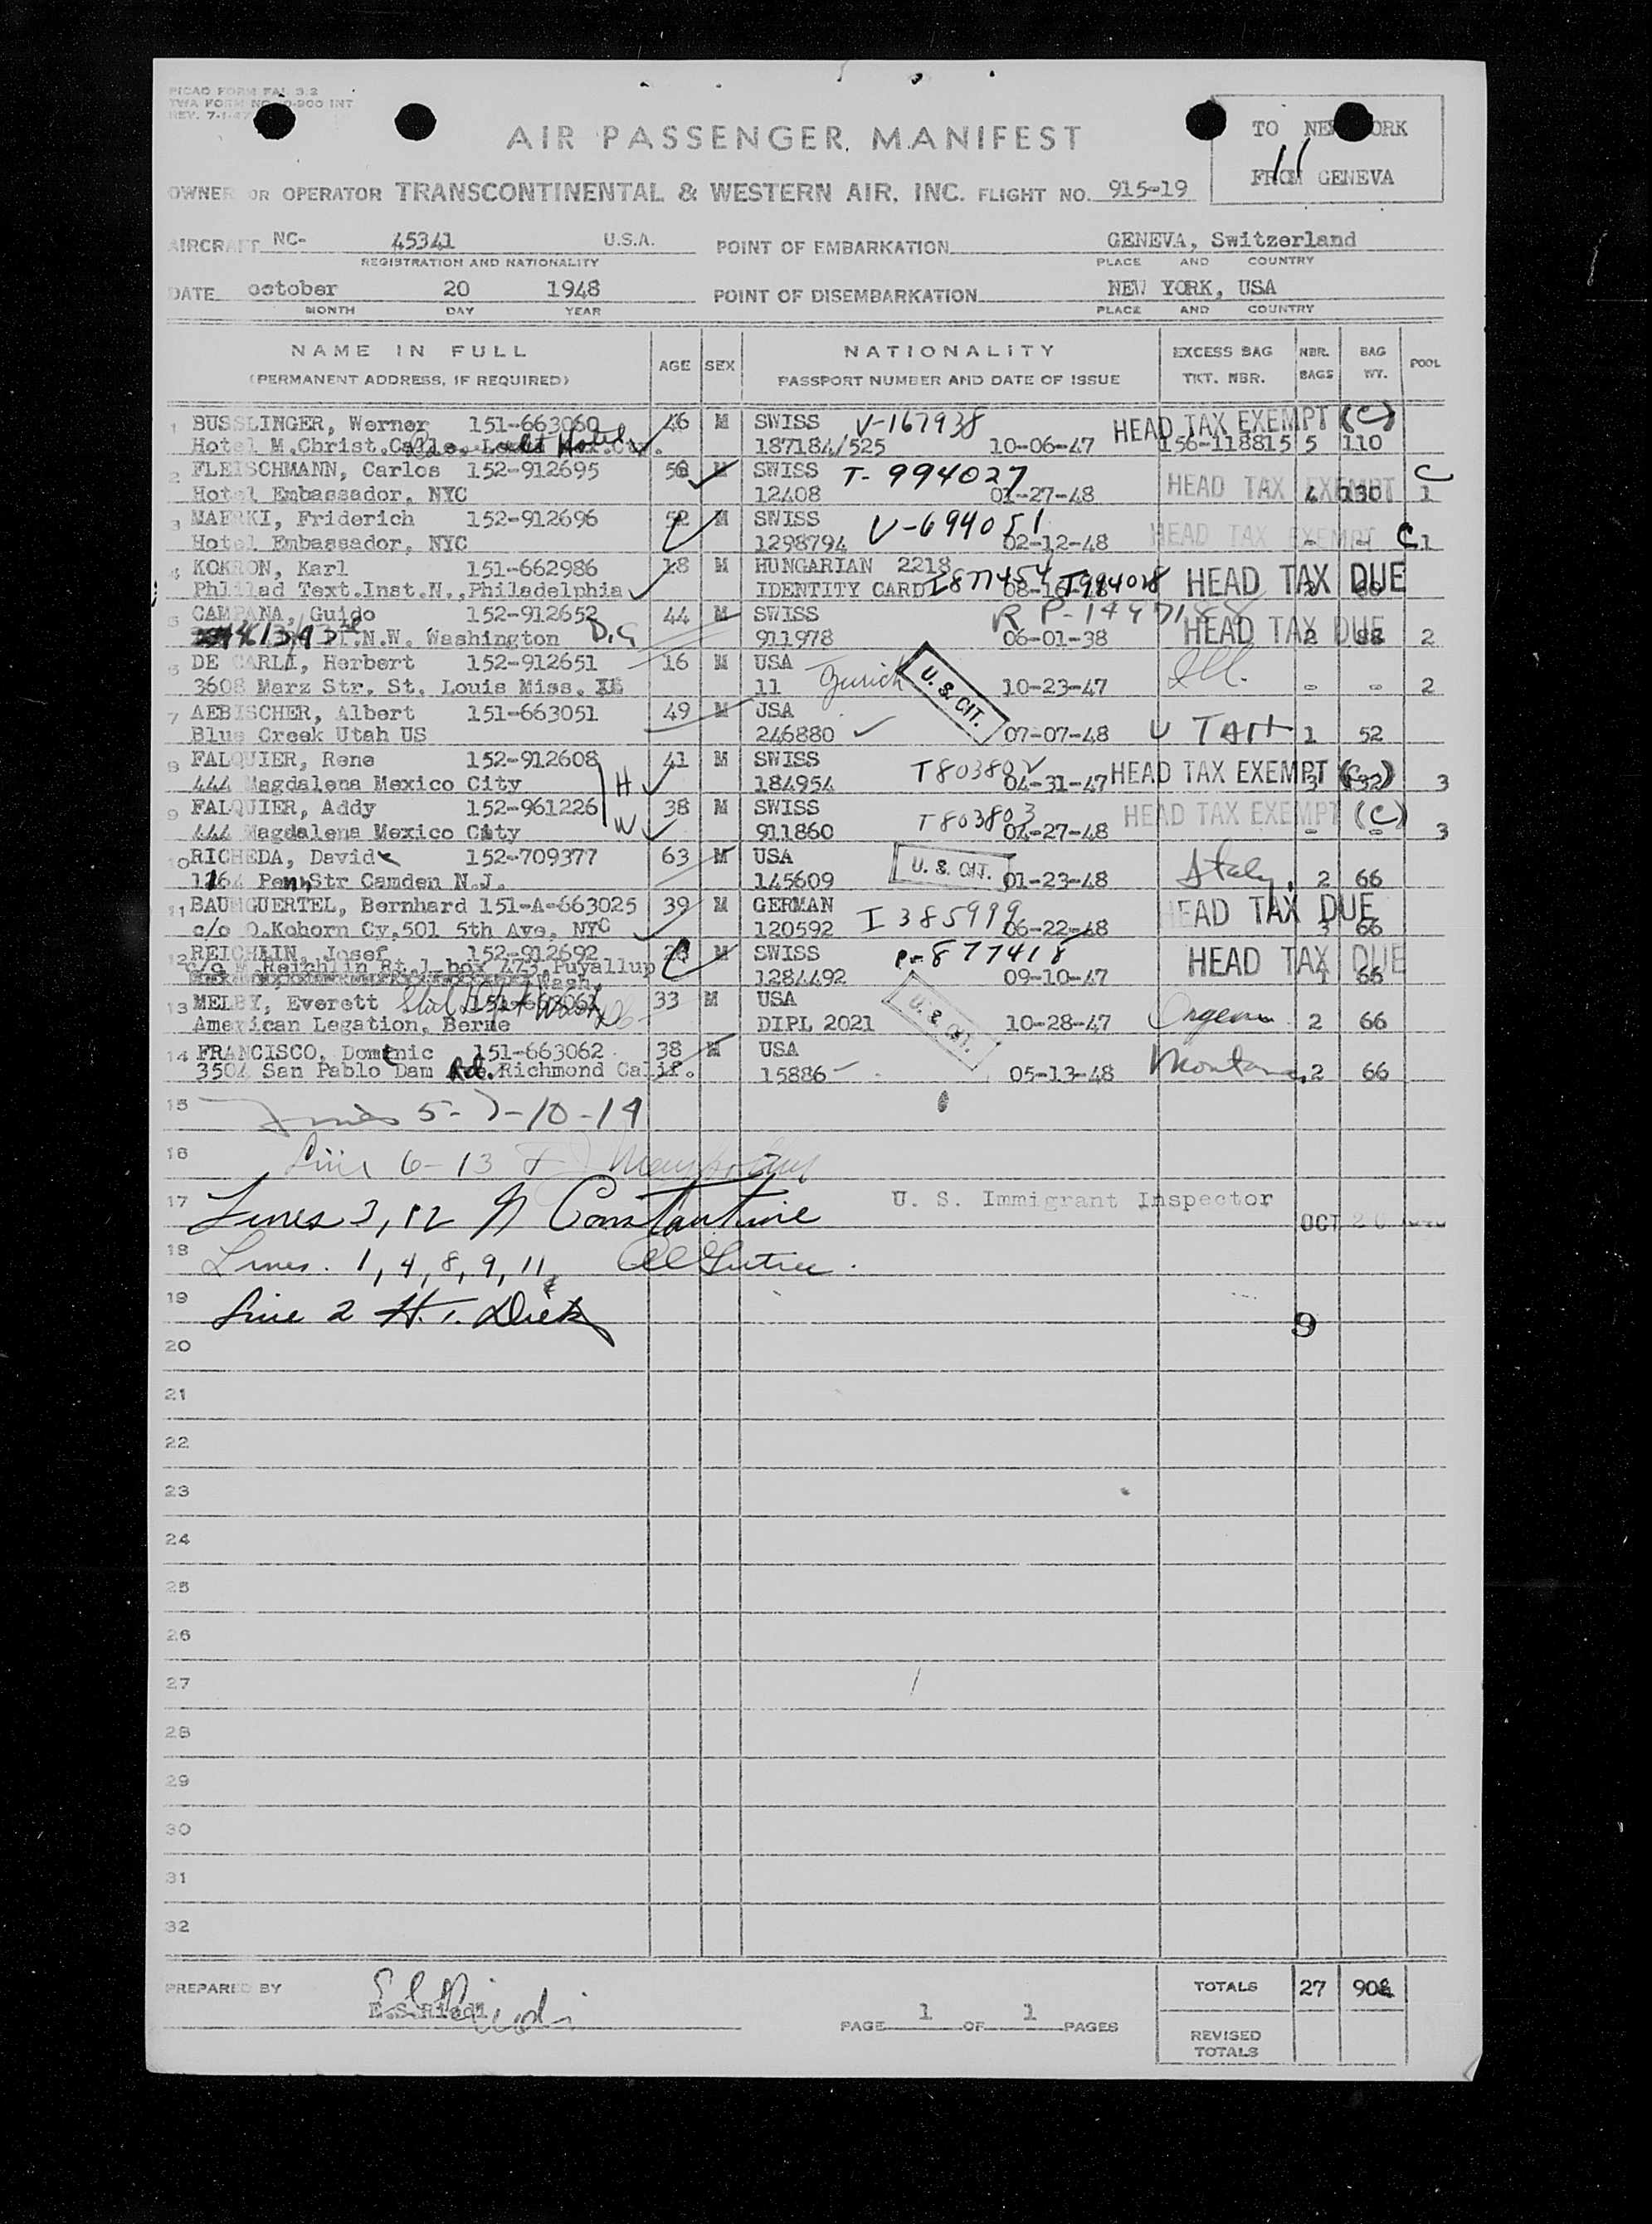 PICAO FORM FAL 3.2
TWA FORM NO. 0-900 INT
REV. 7-1-47
AIR PASSENGER MANIFEST
TO NEW YORK
11
FROM GENEVA
OWNER OR OPERATOR TRANSCONTINENTAL & WESTERN AIR, INC. FLIGHT NO. 915-19
AIRCRAFT NC- 45341 U.S.A. POINT OF EMBARKATION GENEVA, Switzerland
REGISTRATION AND NATIONALITY PLACE AND COUNTRY
DATE october 20 1948 POINT OF DISEMBARKATION NEW YORK, USA
MONTH DAY YEAR PLACE AND COUNTRY
NAME IN FULL AGE SEX NATIONALITY EXCESS BAG NBR. BAG POOL
(PERMANENT ADDRESS, IF REQUIRED) PASSPORT NUMBER AND DATE OF ISSUE TKT. NBR. BAGS WT.
1 BUSSLINGER, Werner 151-663060 46 M SWISS V-167938 HEAD TAX EXEMPT (C)
Hotel M.Christ. Hotel 187184/525 10-06-47 156-118815 5 110
2 FLEISCHMANN, Carlos 152-912695 M SWISS T-994027 C
Hotel Embassador, NYC 12408 01-27-48 HEAD TAX EXEMPT 4 130 1
3 MAERKI, Friderich 152-912696 52 M SWISS V-694051
Hotel Embassador, NYC 1298794 02-12-48 HEAD TAX EXEMPT - - C 1
4 KOKRON, Karl 151-662986 18 M HUNGARIAN 2218
Philad Text.Inst.N.,Philadelphia IDENTITY CARD I877454 T994028 HEAD TAX DUE
5 CAMPANA, Guido 152-912652 44 M SWISS R P-1497188
N.W. Washington D.C 911978 06-01-38 HEAD TAX DUE 2 88 2
6 DE CARLI, Herbert 152-912651 16 M USA Zurich U. S. CIT. Ill.
3608 Marz Str. St. Louis Miss. 11 10-23-47 - - 2
7 AEBISCHER, Albert 151-663051 49 M USA
Blue Creek Utah US 246880 07-07-48 UTAH 1 52
8 FALQUIER, Rene 152-912608 41 M SWISS T803802
444 Magdalena Mexico City H 184954 04-31-47 HEAD TAX EXEMPT (C) 3 3
9 FALQUIER, Addy 152-961226 38 M SWISS T803803 HEAD TAX EXEMPT (C)
444 Magdalena Mexico City W 911860 04-27-48 - - 3
10 RICHEDA, David 152-709377 63 M USA U. S. CIT. Italy
Penn Str Camden N.J. 145609 01-23-48 2 66
11 BAUMGUERTEL, Bernhard 151-A-663025 39 M GERMAN I 385999 HEAD TAX DUE
c/o O.Kohorn Cy,501 5th Ave, NYC 120592 06-22-48 3 66
12 REICHLIN, Josef 152-912692 M SWISS P-877418 HEAD TAX DUE
c/o Reichlin Rt.1 box 473,Puyallup Wash. 1284492 09-10-47 1 66
13 MELBY, Everett 151-663061 33 M USA U. S. CIT.
American Legation, Berne DIPL 2021 10-28-47 2 66
14 FRANCISCO, Domenic 151-663062 38 M USA
3504 San Pablo Dam Rd. Richmond Calif. 15886 05-13-48 Montana 2 66
15 Lines 5-7-10-14
16 Line 6-13
17 Lines 3, 12 N Constantine U. S. Immigrant Inspector
OCT 20
18 Lines. 1, 4, 8, 9, 11,
19 Line 2 H. Dick
9
20
21
22
23
24
25
26
27
28
29
30
31
32
PREPARED BY E.S.Riedi TOTALS 27 902
PAGE 1 OF 1 PAGES
REVISED
TOTALS